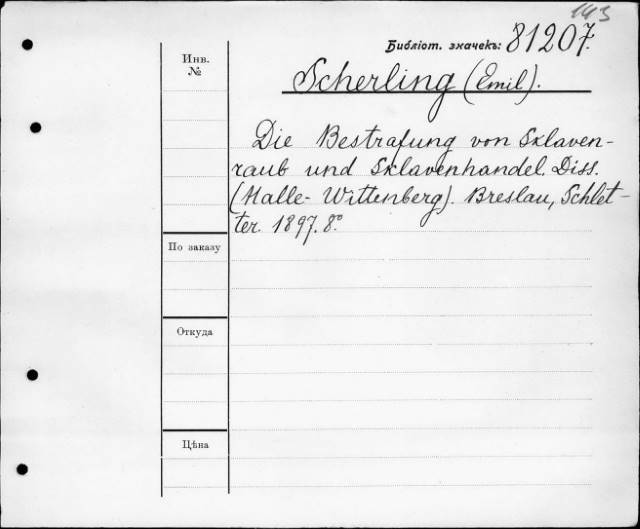 143
Библіот. значекъ: 81207.
Инв.
№
Scherling (Emil).
Die Bestrafung von Sklaven-
raub und Sklavenhandel. Diss.
(Halle-Wittenberg). Breslau, Schlet-
ter. 1897. 8°
По заказу
Откуда
Цѣна